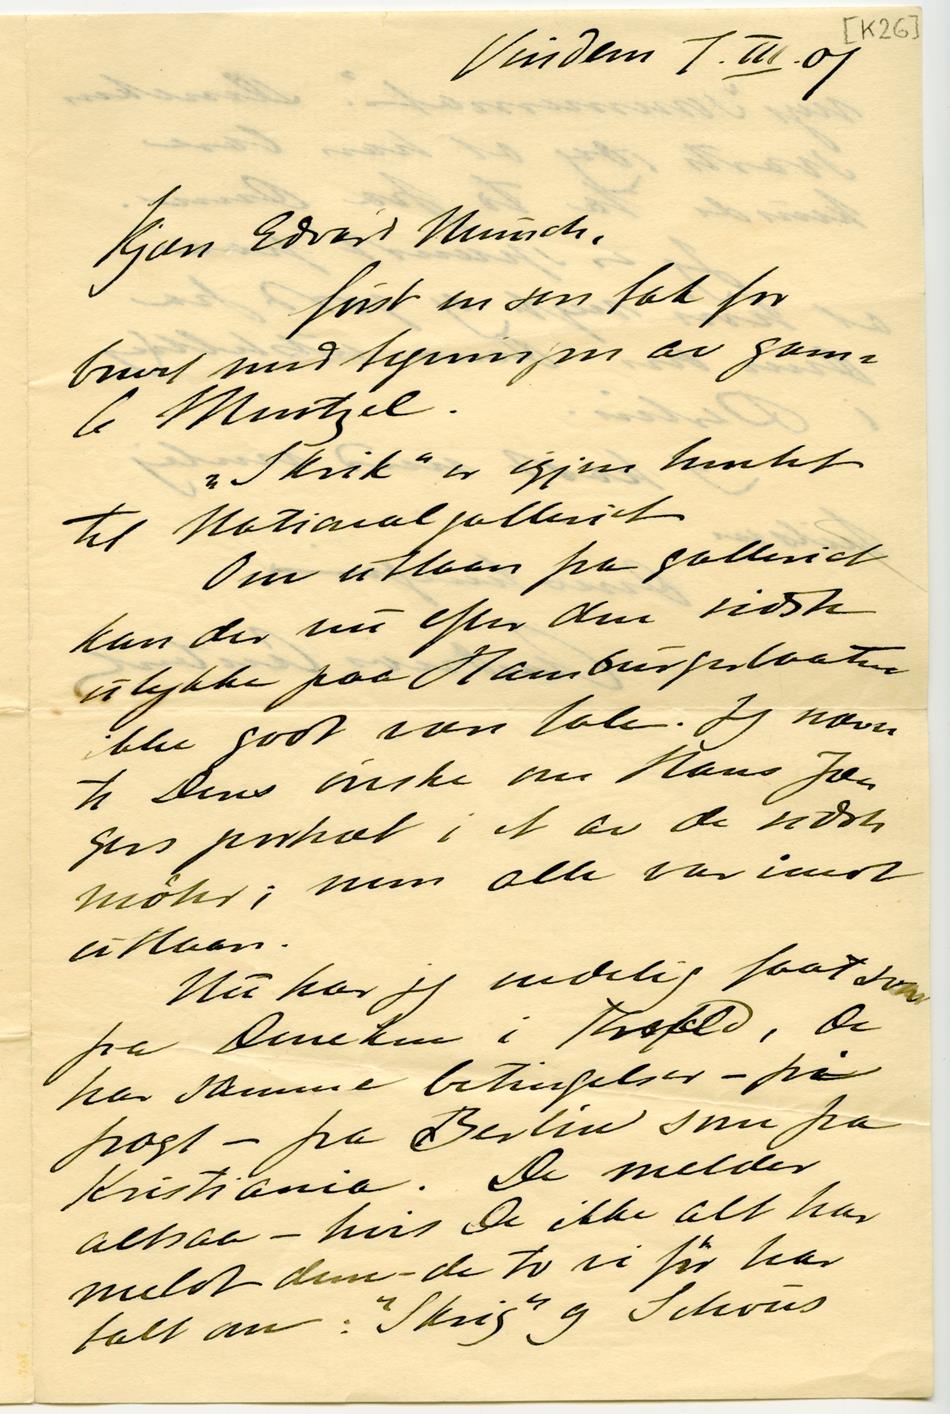 [K26]
Vindern 7.III.07
Kjære Edvard Munch,
først en sen tak for
brevet med tegningen av gam-
le Mentzel.
„Skrik“ er igjen hentet
til Nationalgalleriet
Om utlaan fra galleriet
kan der nu efter den sidste
ulykke paa Hamburgerbaaten
ikke godt være tale. Jeg nævn
te Deres ønske om Hans Jæ
gers portræt i et av de sidste
møter; men alle var imot
utlaan.
Nu har jeg endelig faat svar
fra Deneken i Krefeld, De
har samme betingelser – fri
fragt – fra Berlin som fra
Kristiania. De melder
altsaa – hvis De ikke alt har
meldt dem – de to vi før har
talt om: "Skrig" og Schous